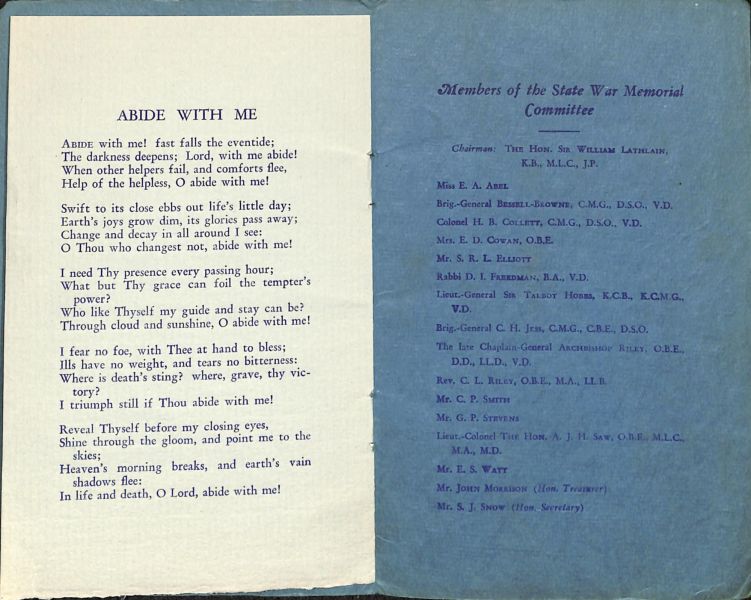 ABIDE WITH ME
ABIDE with me! fast falls the eventide;
The darkness deepens; Lord, with me abide!
When other helpers fail, and comforts flee,
Help of the helpless, O abide with me!
Swift to its close ebbs out life's little day;
Earth's joys grow dim, its glories pass away;
Change and decay in all around I see:
O Thou who changest not, abide with me!
I need Thy presence every passing hour;
What but Thy grace can foil the tempter's
power?
Who like Thyself my guide and stay can be?
Through cloud and sunshine, O abide with me!
I fear no foe, with Thee at hand to bless;
Ills have no weight, and tears no bitterness:
Where is death's sting? where, grave, thy vic-
tory?
I triumph still if Thou abide with me!
Reveal Thyself before my closing eyes,
Shine through the gloom, and point me to the
skies;
Heaven's morning breaks, and earth's vain
shadows flee:
In life and death, O Lord, abide with me!
Members of the State War Memorial
Committee
Chairman: THE HON. SIR WILLIAM LATHLAIN,
K.B., M.L.C., J.P.
Miss E. A. ABEL
Brig.-General BESSELL-BROWNE, C.M.G., D.S.O., V.D.
Colonel H. B. COLLETT, C.M.G., D.S.O., V.D.
Mrs. E. D. COWAN, O.B.E.
Mr. S. R. L. ELLIOTT
Rabbi D. I. FREEDMAN, B.A., V.D.
Lieut.-General SIR TALBOT HOBBS, K.C.B., K.C.M.G.,
V.D.
Brig.-General C. H. JESS, C.M.G., C.B.E., D.S.O.
The late Chaplain-General ARCHBISHOP RILEY, O.B.E.,
D.D., LL.D., V.D.
Rev. C. L. RILEY, O.B.E., M.A., LL.B.
Mr. C. P. SMITH
Mr. G. P. STEVENS
Lieut.-Colonel THE HON. A. J. H. SAW, O.B.E., M.L.C.,
M.A., M.D.
Mr. E. S. WATT
Mr. JOHN MORRISON (Hon. Treasurer)
Mr. S. J. SNOW (Hon. Secretary)